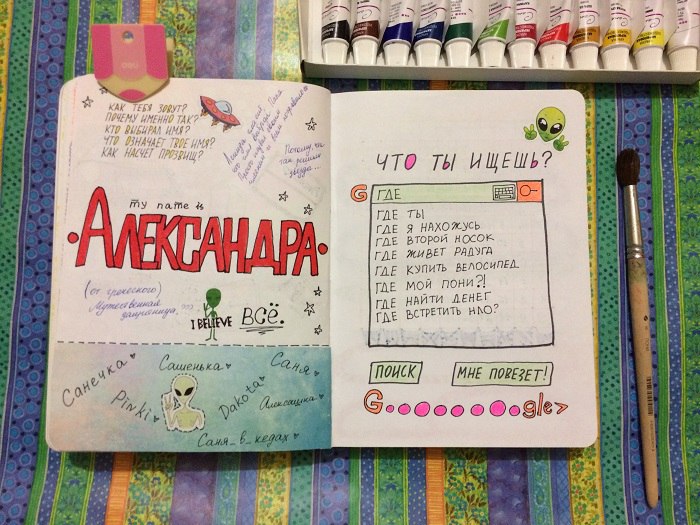 КАК ТЕБЯ ЗОВУТ?
ПОЧЕМУ ИМЕННО ТАК?
КТО ВЫБИРАЛ ИМЯ?
ЧТО ОЗНАЧАЕТ ТВОЕ ИМЯ?
КАК НАСЧЕТ ПРОЗВИЩ?
Потому, что
так решили
звёзды...
my name is
АЛЕКСАНДРА
(от греческого)
Мужественная
защитница.
I BELIEVE ВСЁ.
Санечка
Сашенька
Саня
Pinki
Dakota
Алексашка
Саня_в_кедах
ЧТО ТЫ ИЩЕШЬ?
G ГДЕ
ГДЕ ТЫ
ГДЕ Я НАХОЖУСЬ
ГДЕ ВТОРОЙ НОСОК
ГДЕ ЖИВЕТ РАДУГА
ГДЕ КУПИТЬ ВЕЛОСИПЕД
ГДЕ МОЙ ПОНИ?!
ГДЕ НАЙТИ ДЕНЕГ
ГДЕ ВСТРЕТИТЬ НЛО?
ПОИСК МНЕ ПОВЕЗЕТ!
G gle>